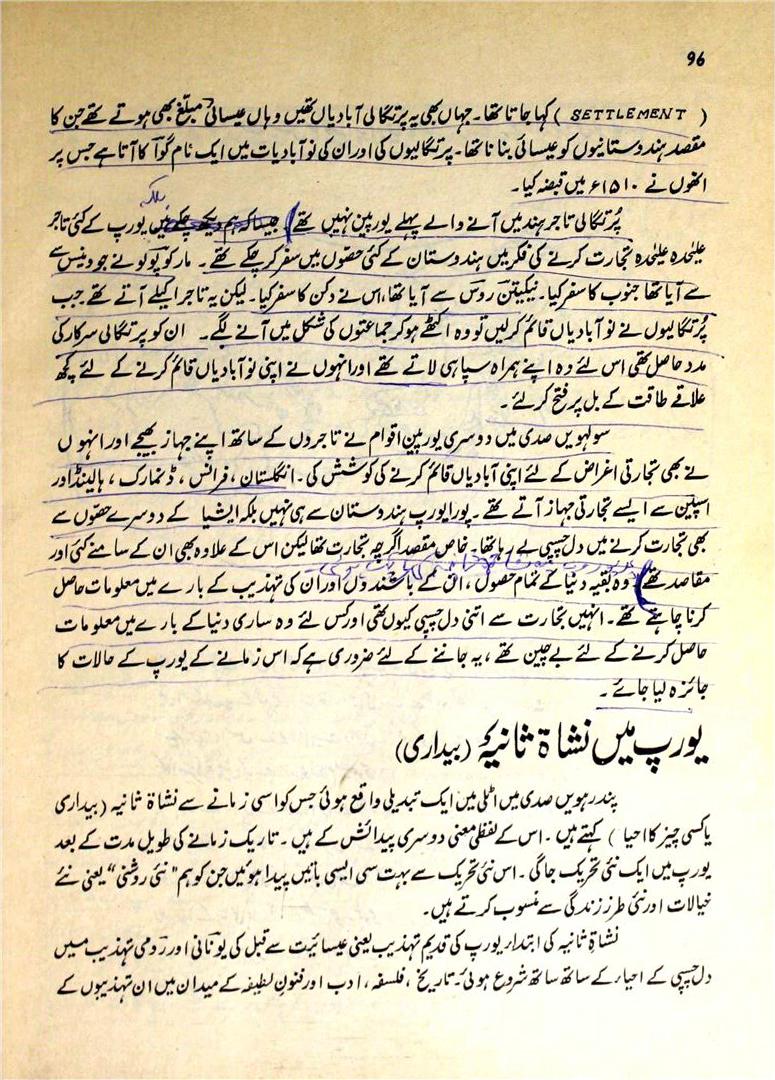 96
( SETTLEMENT ) کہا جاتا تھا۔ جہاں بھی یہ پرتگالی آبادیاں تھیں وہاں عیسائی مبلغ بھی ہوتے تھے جن کا
مقصد ہندوستانیوں کو عیسائی بنانا تھا۔ پرتگالیوں کی اور ان کی نوآبادیات میں ایک نام گوآ کا آتا ہے جس پر
انھوں نے ۱۵۱۰ء میں قبضہ کیا۔
بلکہ
پُرتگالی تاجر ہند میں آنے والے پہلے یورپین نہیں تھے جیسا کہ ہم دیکھ چکے ہیں یورپ کے کئی تاجر
علیٰحدہ علیٰحدہ تجارت کرنے کی فکر میں ہندوستان کے کئی حصّوں میں سفر کر چکے تھے۔ مارکو پولو نے جو وینس سے
سے آیا تھا جنوب کا سفر کیا۔ نیکیتین روس سے آیا تھا، اس نے دکن کا سفر کیا۔ لیکن یہ تاجر اکیلے آتے تھے جب
پُرتگالیوں نے نوآبادیاں قائم کر لیں تو وہ اکٹھے ہو کر جماعتوں کی شکل میں آنے لگے۔ ان کو پرتگالی سرکار کی
مدد حاصل تھی اس لئے وہ اپنے ہمراہ سپاہی لاتے تھے اور انہوں نے اپنی نوآبادیاں قائم کرنے کے لئے کچھ
علاقے طاقت کے بل پر فتح کر لئے۔
سولہویں صدی میں دوسری یورپین اقوام نے تاجروں کے ساتھ اپنے جہاز بھیجے اور انہوں
نے بھی تجارتی اغراض کے لئے اپنی آبادیاں قائم کرنے کی کوشش کی۔ انگلستان، فرانس، ڈنمارک، ہالینڈ اور
اسپین سے ایسے تجارتی جہاز آتے تھے۔ پورا یورپ ہندوستان سے ہی نہیں بلکہ ایشیا کے دوسرے حصّوں سے
بھی تجارت کرنے میں دل چسپی لے رہا تھا۔ خاص مقصد اگرچہ تجارت تھا لیکن اس کے علاوہ بھی ان کے سامنے کئی اور
مقاصد تھے وہ بقیہ دنیا کے تمام حصوں، ان کے باشندوں اور ان کی تہذیب کے بارے میں معلومات حاصل
کرنا چاہتے تھے۔ انہیں تجارت سے اتنی دل چسپی کیوں تھی اور کس لئے وہ ساری دنیا کے بارے میں معلومات
حاصل کرنے کے لئے بے چین تھے، یہ جاننے کے لئے ضروری ہے کہ اس زمانے کے یورپ کے حالات کا
جائزہ لیا جائے۔
یورپ میں نشاۃ ثانیہ (بیداری)
پندرہویں صدی میں اٹلی میں ایک تبدیلی واقع ہوئی جس کو اسی زمانے سے نشاۃ ثانیہ (بیداری
یا کسی چیز کا احیا ) کہتے ہیں۔ اس کے لفظی معنی دوسری پیدائش کے ہیں۔ تاریک زمانے کی طویل مدت کے بعد
یورپ میں ایک نئی تحریک جاگی۔ اس نئی تحریک سے بہت سی ایسی باتیں پیدا ہوئیں جن کو ہم "نئی روشنی" یعنی نئے
خیالات اور نئی طرز زندگی سے منسوب کرتے ہیں۔
نشاۃ ثانیہ کی ابتدا یورپ کی قدیم تہذیب یعنی عیسائیت سے قبل کی یونانی اور رومی تہذیب میں
دل چسپی کے احیاء کے ساتھ ساتھ شروع ہوئی۔ تاریخ، فلسفہ، ادب اور فنونِ لطیفہ کے میدان میں ان تہذیبوں کے